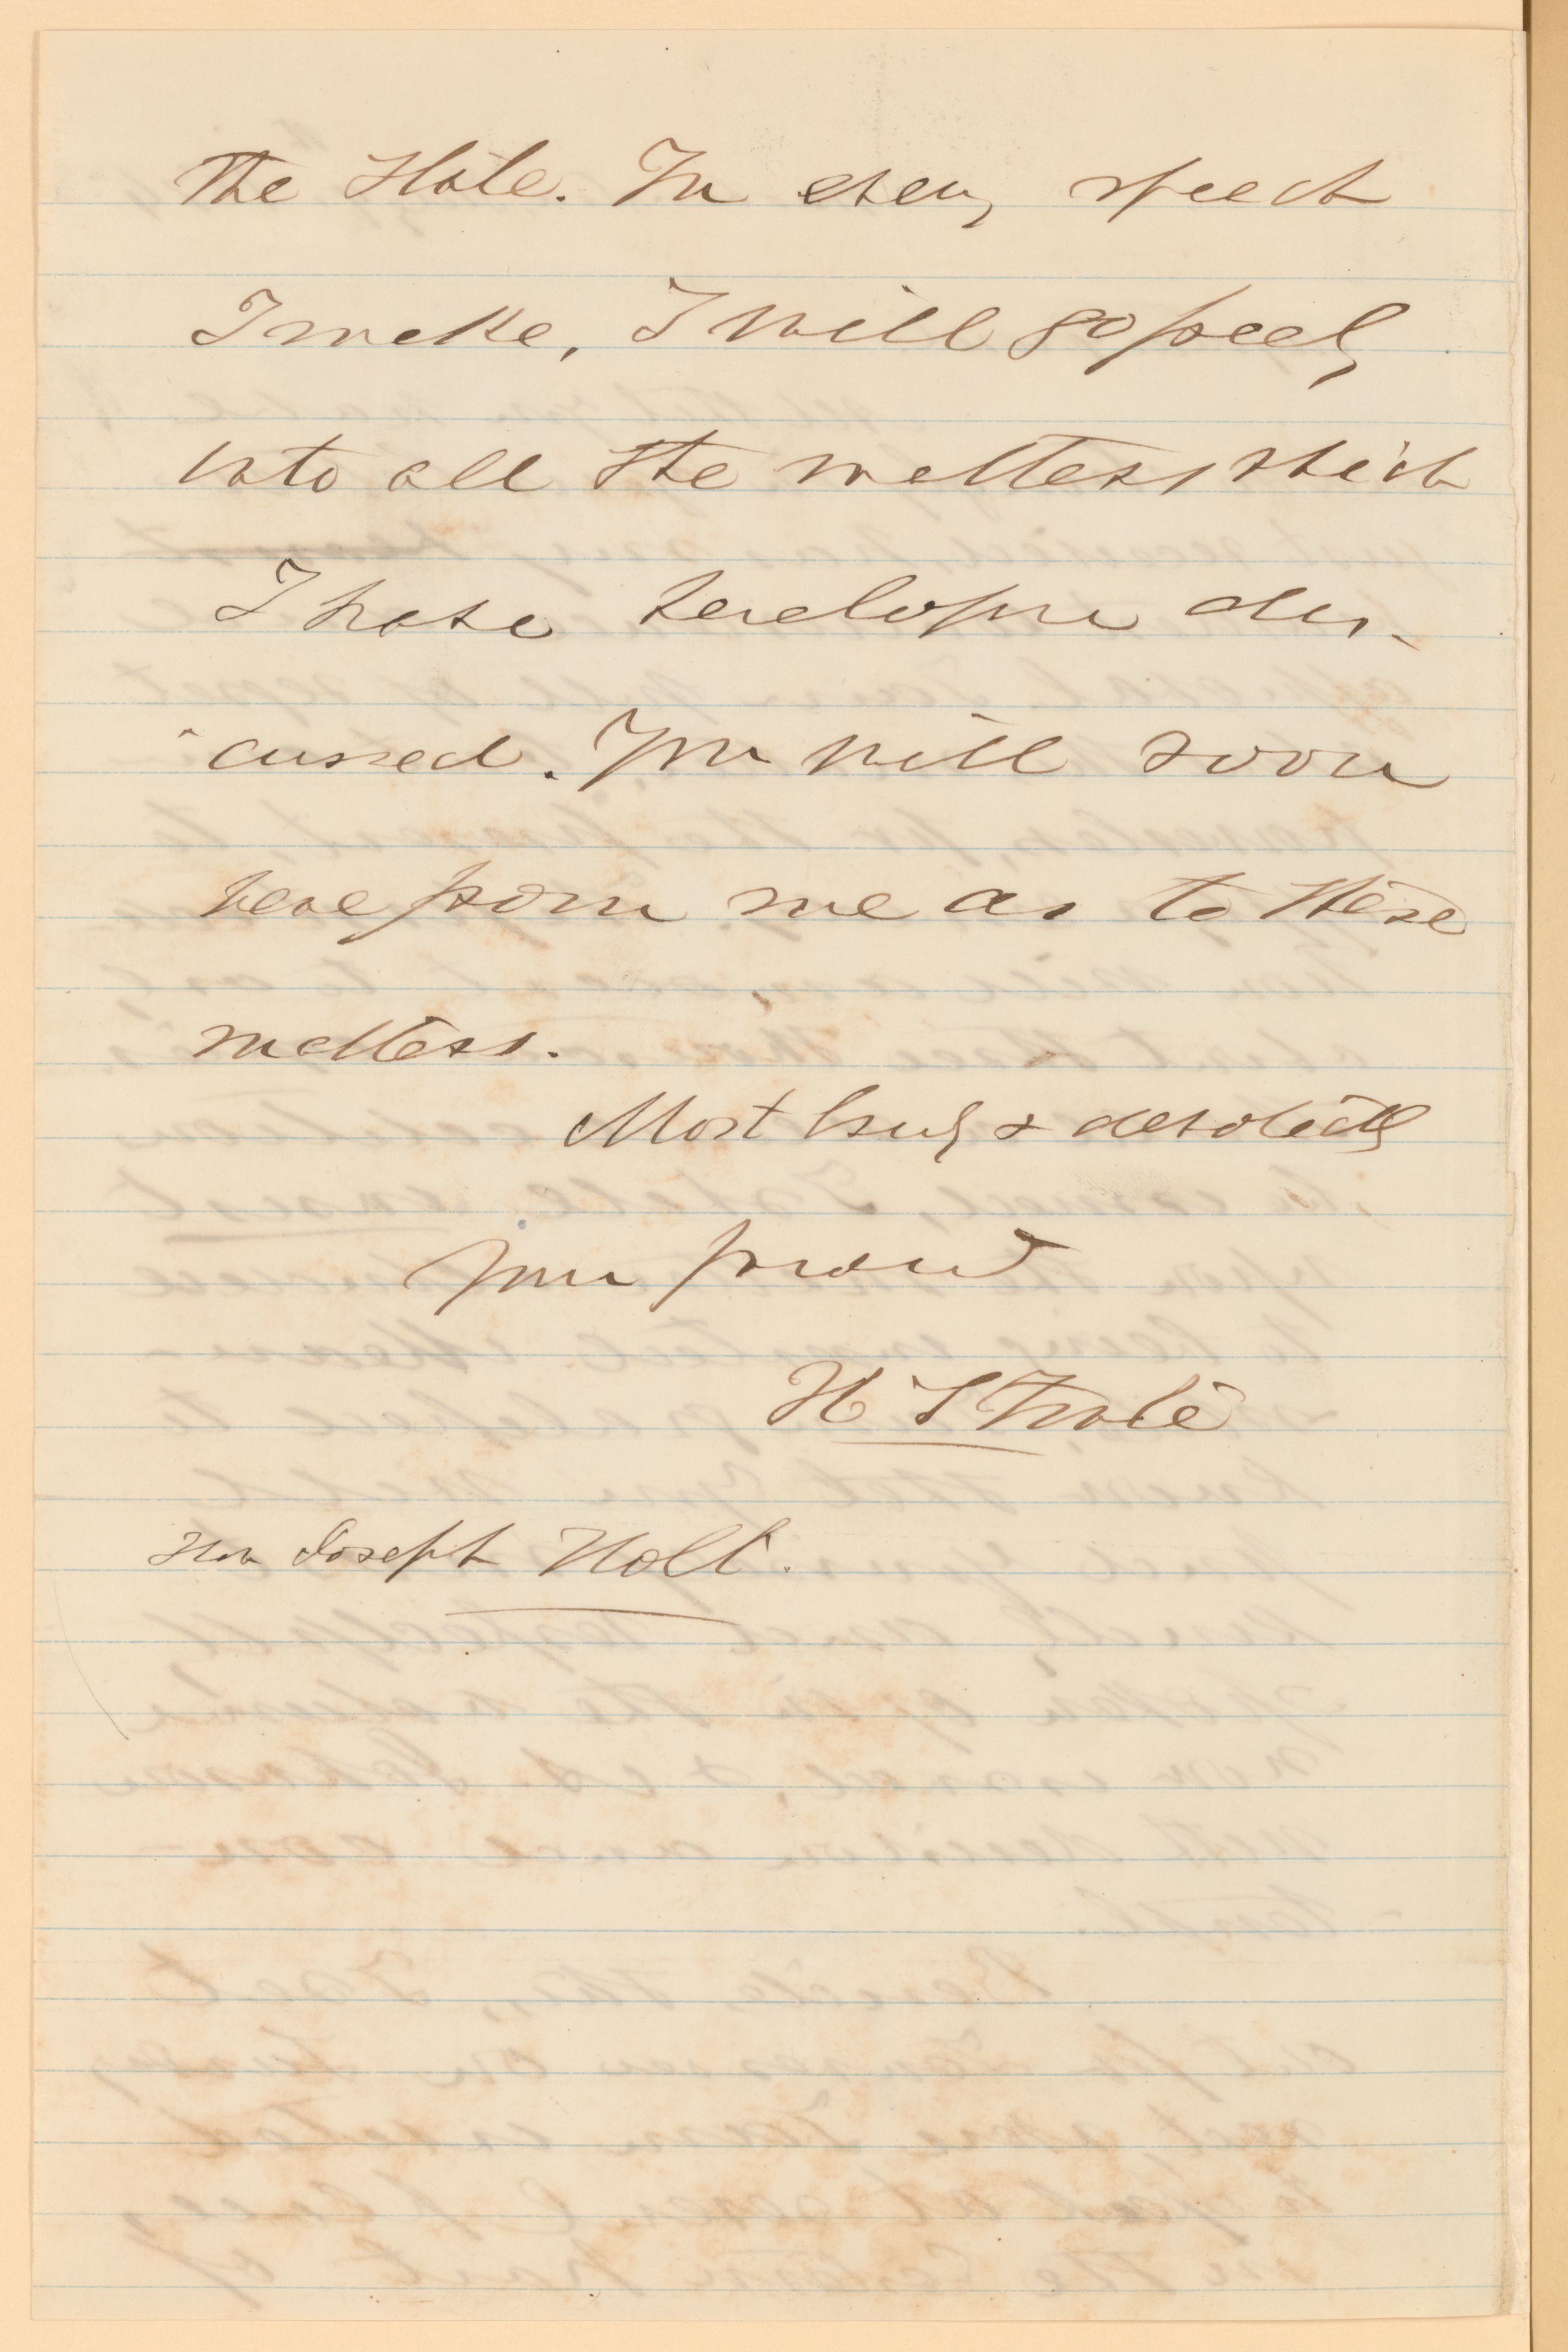 the State. In every speech
I make, I will go freely
into all the matters which
I have heretofore dis-
cussed. You will soon
hear from me as to these
matters.
Most truly & devotedly
Your friend
H S Foote
Hon Joseph Holt.